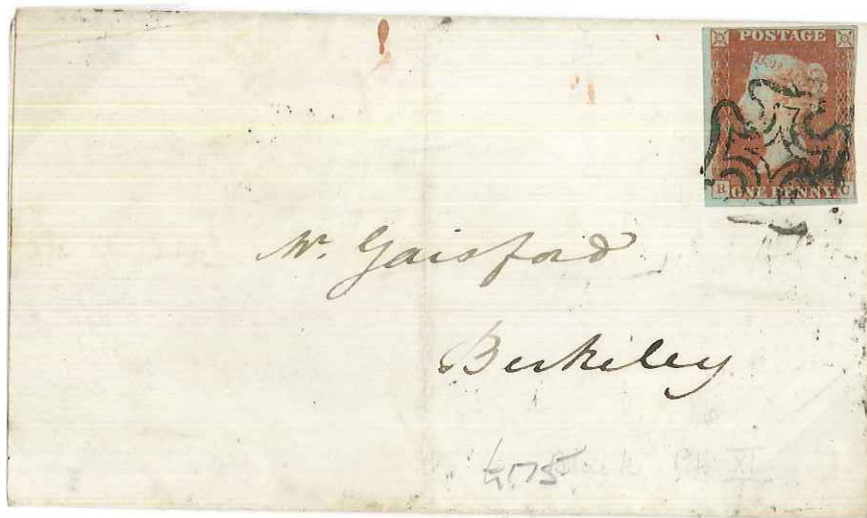 POSTAGE
ONE PENNY.
Mr. Gaisford
Berkeley